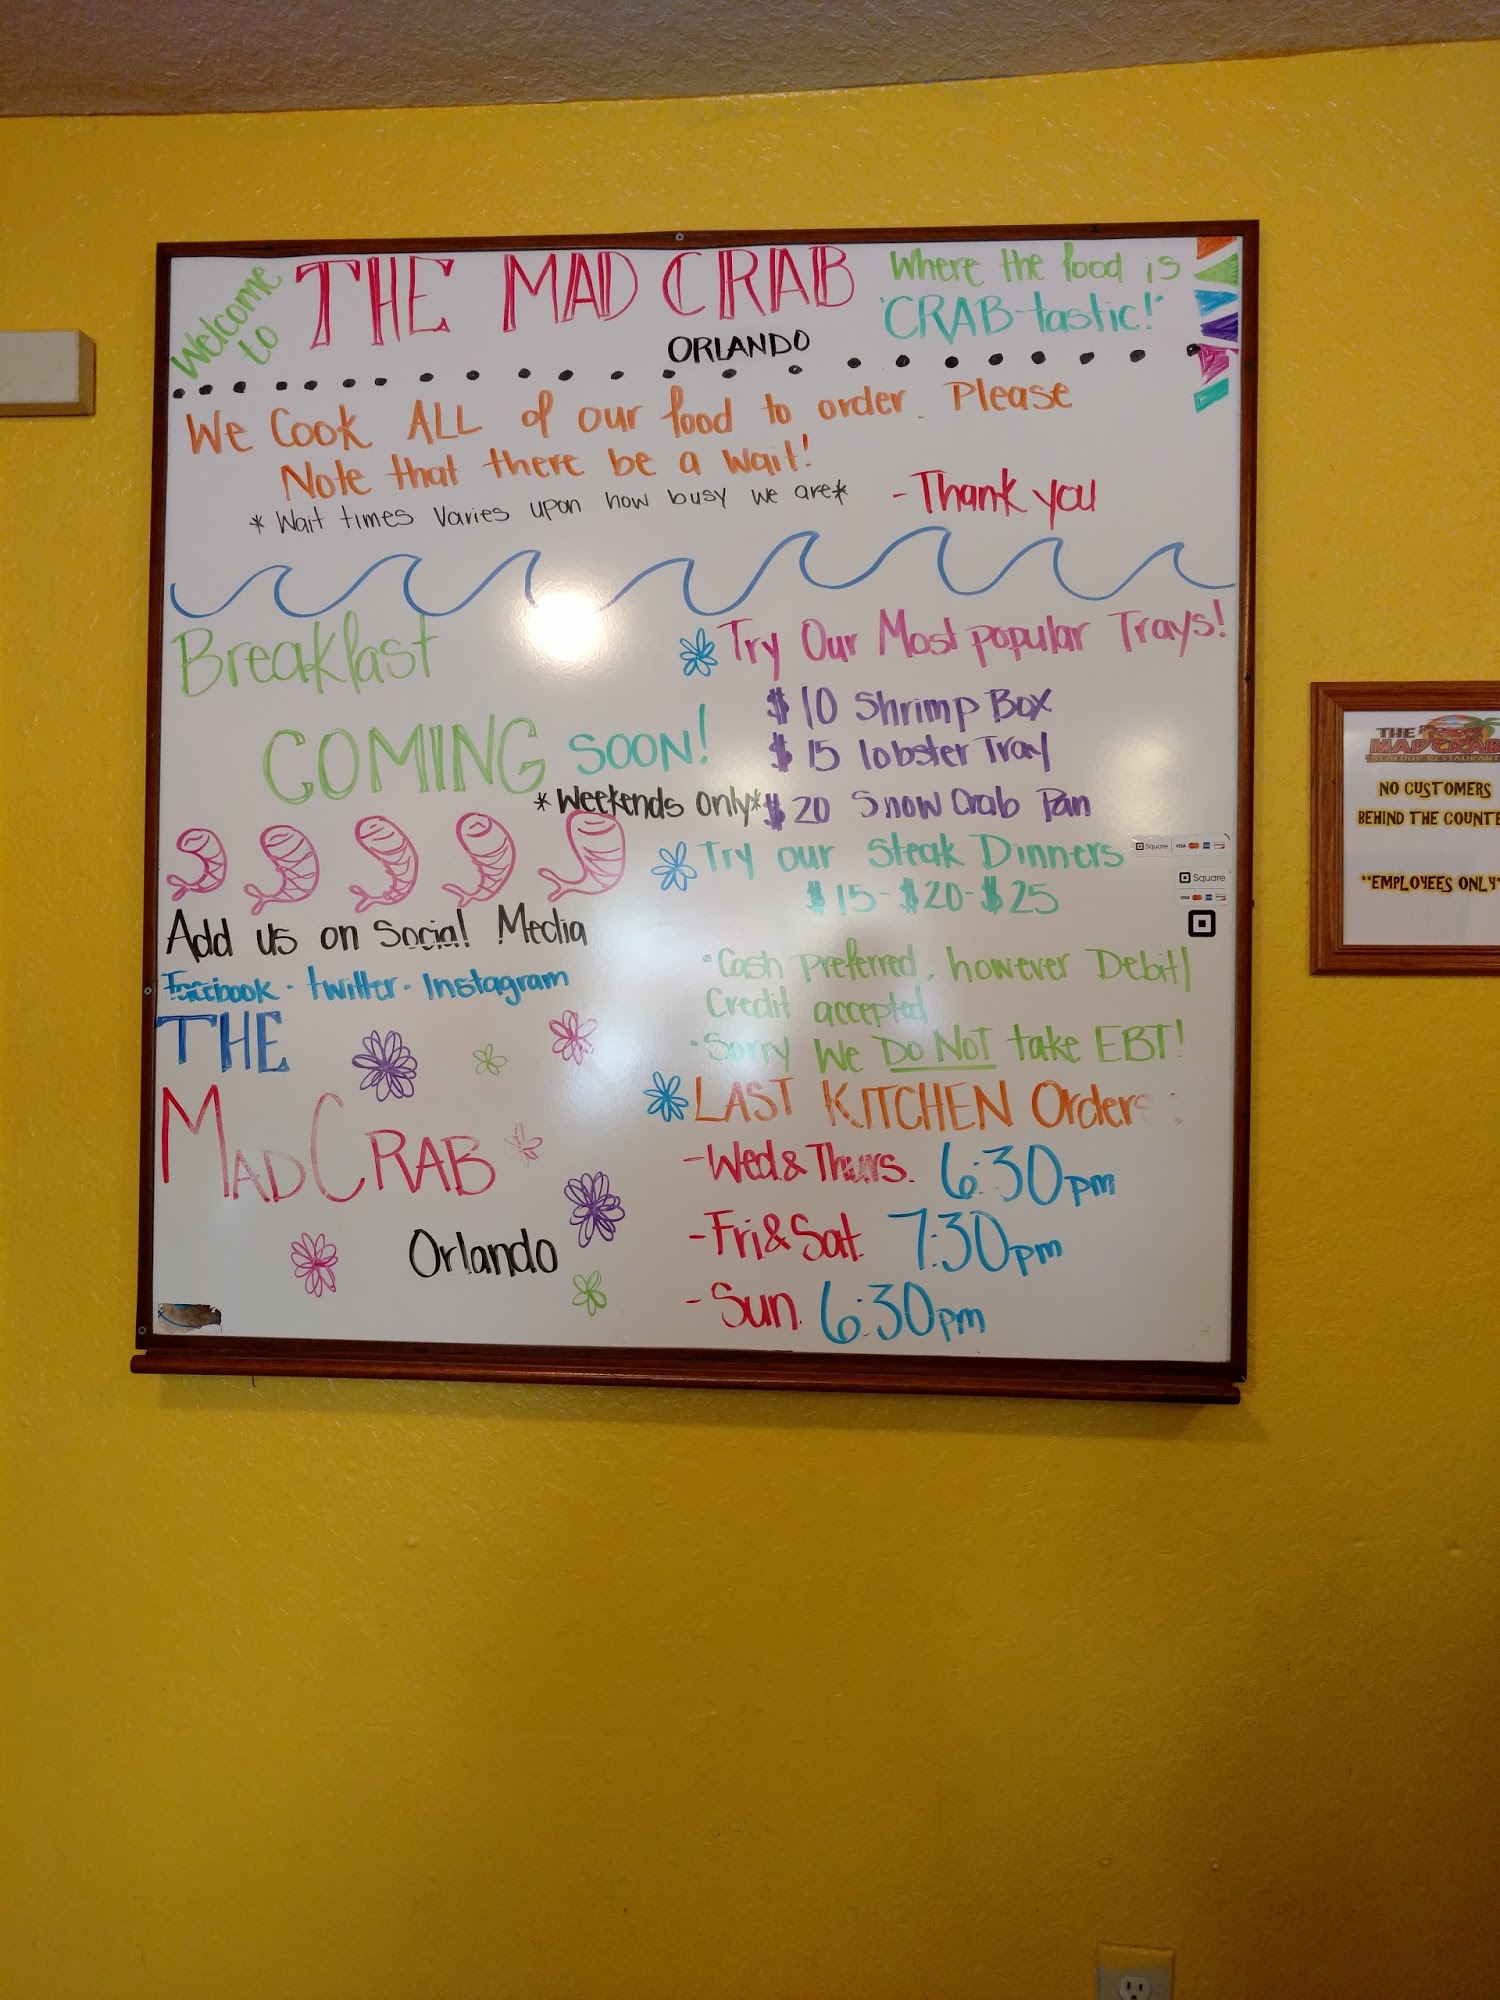 Welcome to THE MAD CRAB
ORLANDO
Where the food is
"CRAB-tastic!"
We Cook ALL of our food to order. Please
Note that there be a wait!
*Wait times varies upon how busy we are*
- Thank you
Breakfast
COMING SOON!
*Weekends Only*
Add us on Social Media
Facebook - twitter - Instagram
THE
MADCRAB
Orlando
Try Our Most popular Trays!
$10 Shrimp Box
$15 lobster Tray
$20 Snow Crab Pan
Try our Steak Dinners
$15-$20-$25
Square VISA
Square
VISA
•Cash preferred, however Debit/
Credit accepted
•Sorry We DO NOT take EBT!
LAST KITCHEN Orders
-Wed&Thurs. 6:30pm
-Fri&Sat. 7:30pm
-Sun. 6:30pm
THE
MAD CRAB
SEAFOOD RESTAURANT
NO CUSTOMERS
BEHIND THE COUNTE
**EMPLOYEES ONLY*